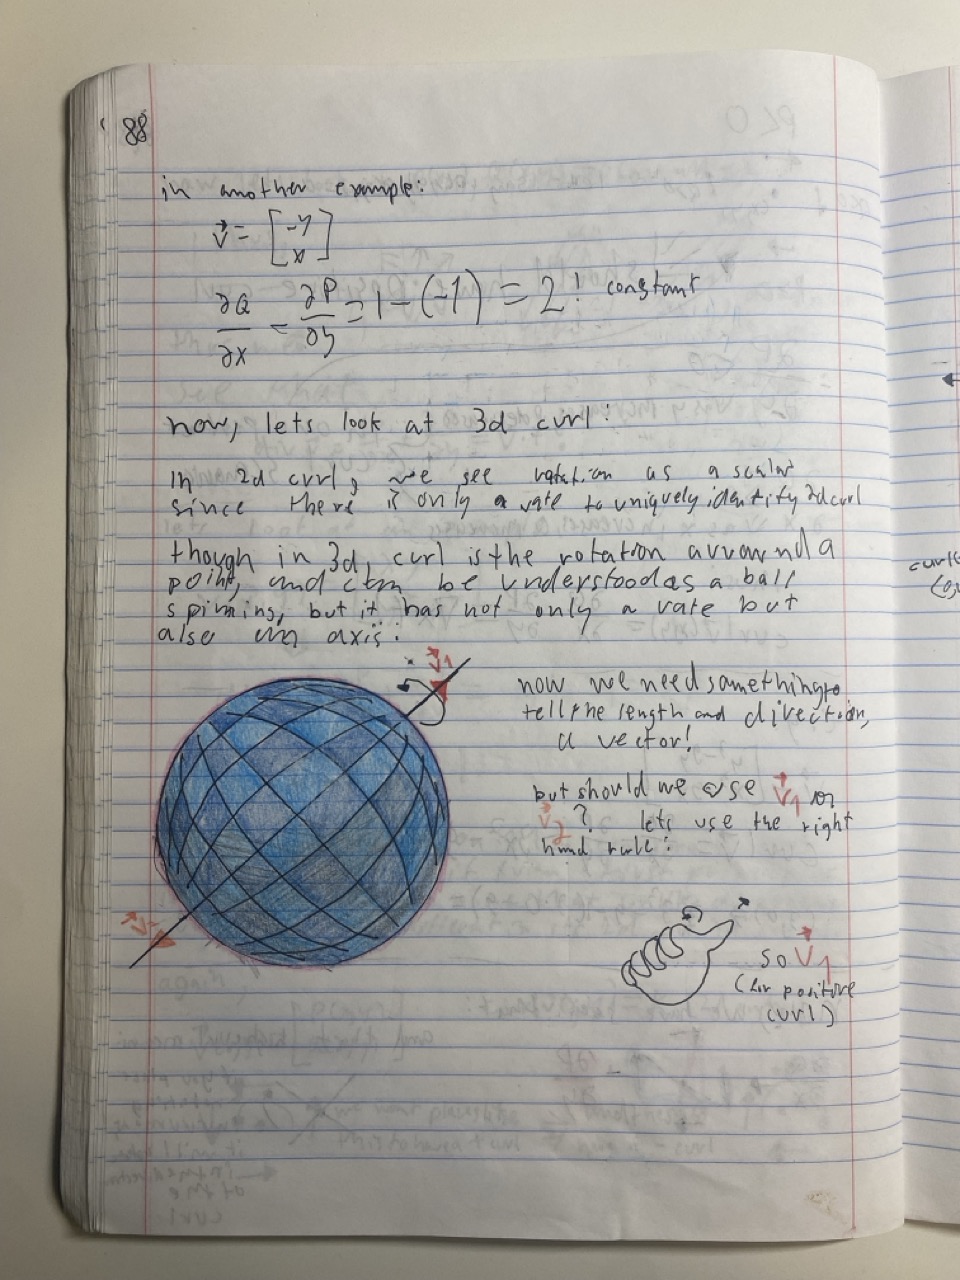 88
in another example:
v⃗ = [-y
x]
∂Q/∂x - ∂P/∂y = 1 - (-1) = 2! constant
now, lets look at 3d curl:
In 2d curl, we see rotation as a scalar
since there is only a rate to uniquely identify 2d curl
though in 3d, curl is the rotation arround a
point, and can be understood as a ball
spinning, but it has not only a rate but
also an axis:
v⃗1
now we need something to
tell the length and direction,
a vector!
but should we use v⃗1 or
v⃗2? lets use the right
hand rule:
v⃗2
so v⃗1
(for positive
curl)
curl